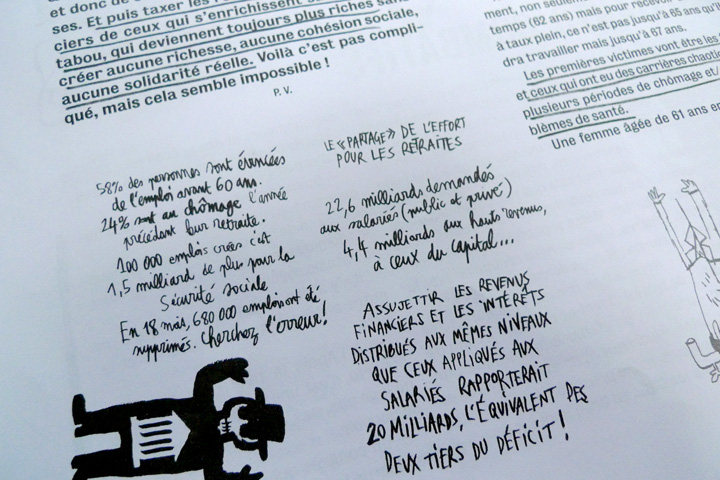 et donc de
ses. Et puis taxer les
ciers de ceux qui s'enrichissent
tabou, qui deviennent toujours plus riches sans
créer aucune richesse, aucune cohésion sociale,
aucune solidarité réelle. Voilà c'est pas compli-
qué, mais cela semble impossible !
P. V.
58% des personnes sont évincées
de l'emploi avant 60 ans.
24% sont au chômage l'année
précédant leur retraite.
100 000 emplois créés c'est
1,5 milliard de plus pour la
Sécurité sociale
En 18 mois, 680 000 emplois ont été
supprimés. Cherchez l'erreur!
LE «PARTAGE» DE L'EFFORT
POUR LES RETRAITES
22,6 milliards demandés
aux salariés (public et privé)
4,4 milliards aux hauts revenus,
à ceux du capital...
ASSUJETTIR LES REVENUS
FINANCIERS ET LES INTÉRÊTS
DISTRIBUÉS AUX MÊMES NIVEAUX
QUE CEUX APPLIQUÉS AUX
SALARIÉS RAPPORTERAIT
20 MILLIARDS, L'ÉQUIVALENT DES
DEUX TIERS DU DÉFICIT!
ment, non seulement
temps (62 ans) mais pour recevoir
à taux plein, ce n'est pas jusqu'à 65 ans qu'il
dra travailler mais jusqu'à 67 ans.
Les premières victimes vont être les
et ceux qui ont eu des carrières chaotiq
plusieurs périodes de chômage et/
blèmes de santé.
Une femme âgée de 61 ans en